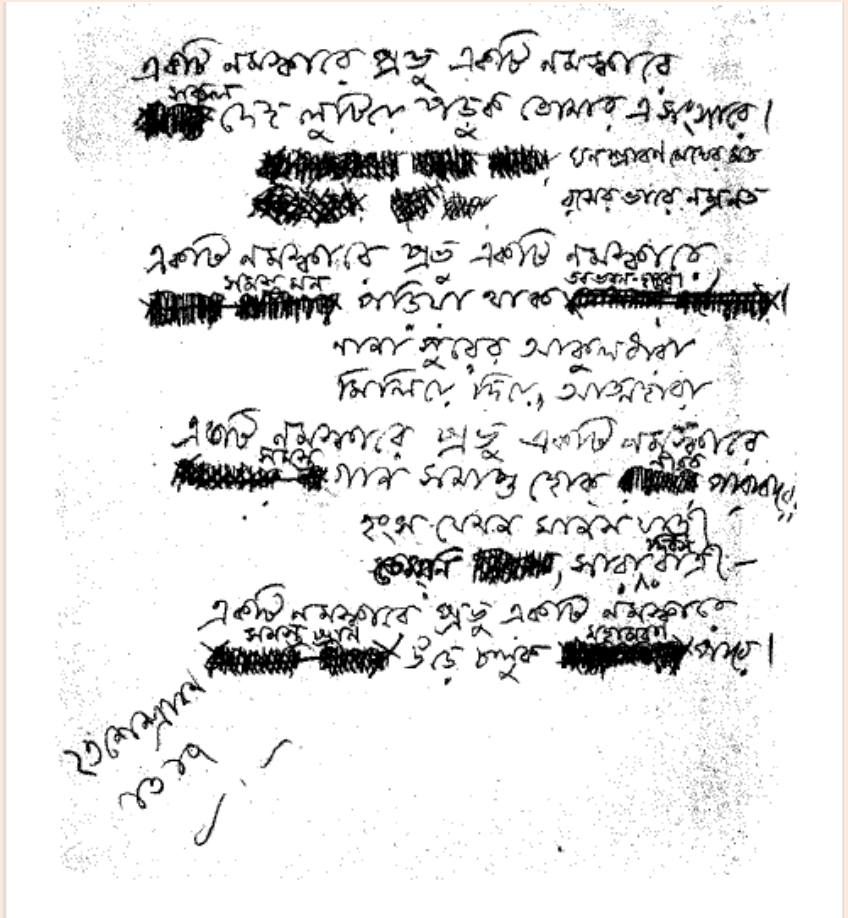 একটি নমস্কারে প্রভু একটি নমস্কারে
সকল দেহ লুটিয়ে পড়ুক তোমার এ সংসারে।
ঘন শ্রাবণ মেঘের মত
রসের ভারে নম্রনত
একটি নমস্কারে প্রভু একটি নমস্কারে
সমস্ত মন পড়িয়া থাক তব ভবন-দ্বারে।
নানা সুরের আকুলধারা
মিলিয়ে দিয়ে, আত্মহারা
একটি নমস্কারে প্রভু একটি নমস্কারে
সমস্ত গান সমাপ্ত হোক নীরব পারাবারে।
হংস যেমন মানসযাত্রী
তেমনি, সারা দিবসরাত্রি—
একটি নমস্কারে প্রভু একটি নমস্কারে
সমস্ত প্রাণ উড়ে চলুক মহামরণ পারে।
২৩শে শ্রাবণ
১৩১৭